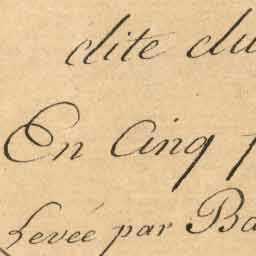 dite du
En Cinq
Levée par Ba